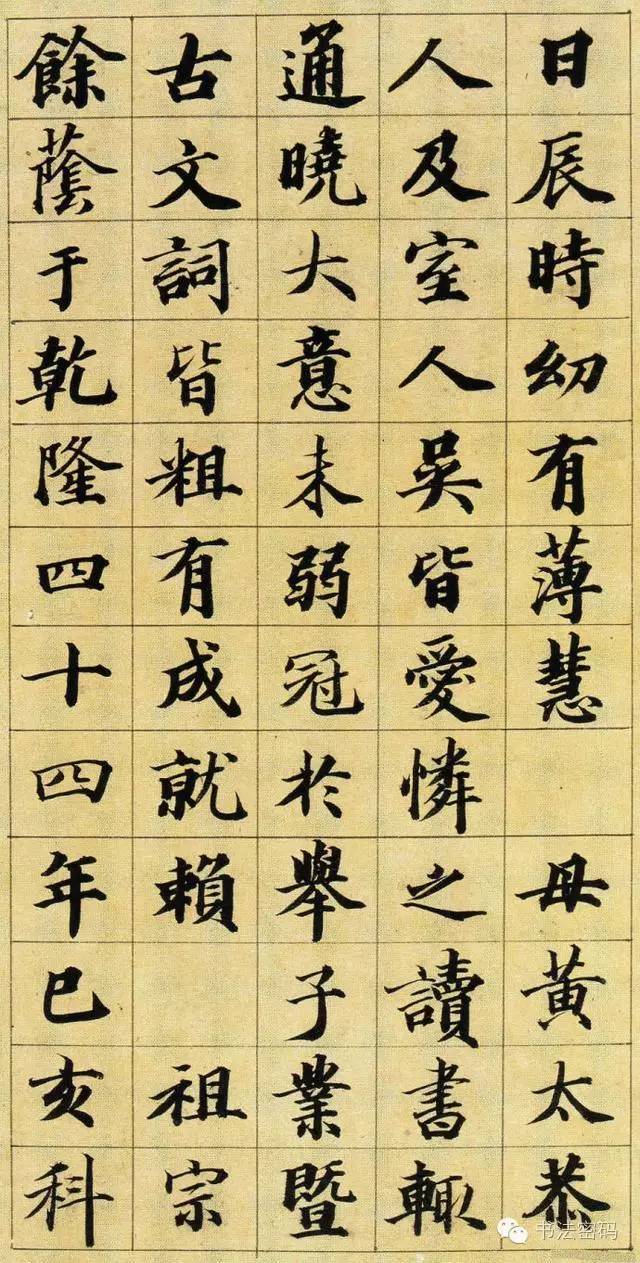 日辰時幼有薄慧　母黃太恭
人及室人吳皆愛憐之讀書輒
通曉大意未弱冠於舉子業暨
古文詞皆粗有成就賴　祖宗
餘蔭于乾隆四十四年己亥科
书法密码